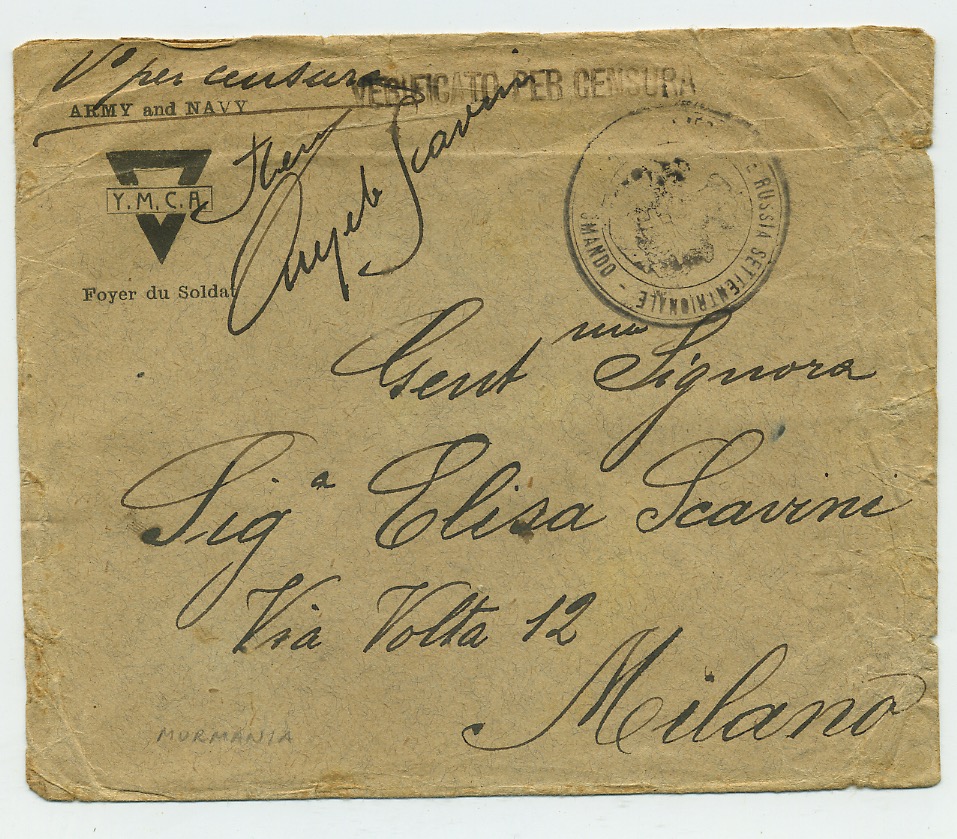 Vo per censura
VERIFICATO PER CENSURA
ARMY and NAVY
Y.M.C.A
Foyer du Soldat
Angelo Scavini
OMANDO - E RUSSIA SETTENTRIONALE -
Gent ma Signora
Sig a Elisa Scavini
Via Volta 12
Milano
MURMANIA